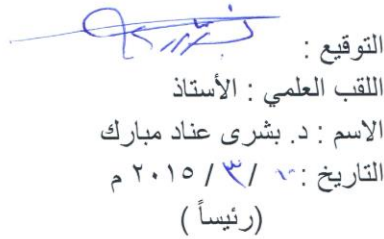 التوقيع :
اللقب العلمي : الأستاذ
الاسم : د. بشرى عناد مبارك
التاريخ : / ٣ / ٢٠١٥ م
(رئيساً )